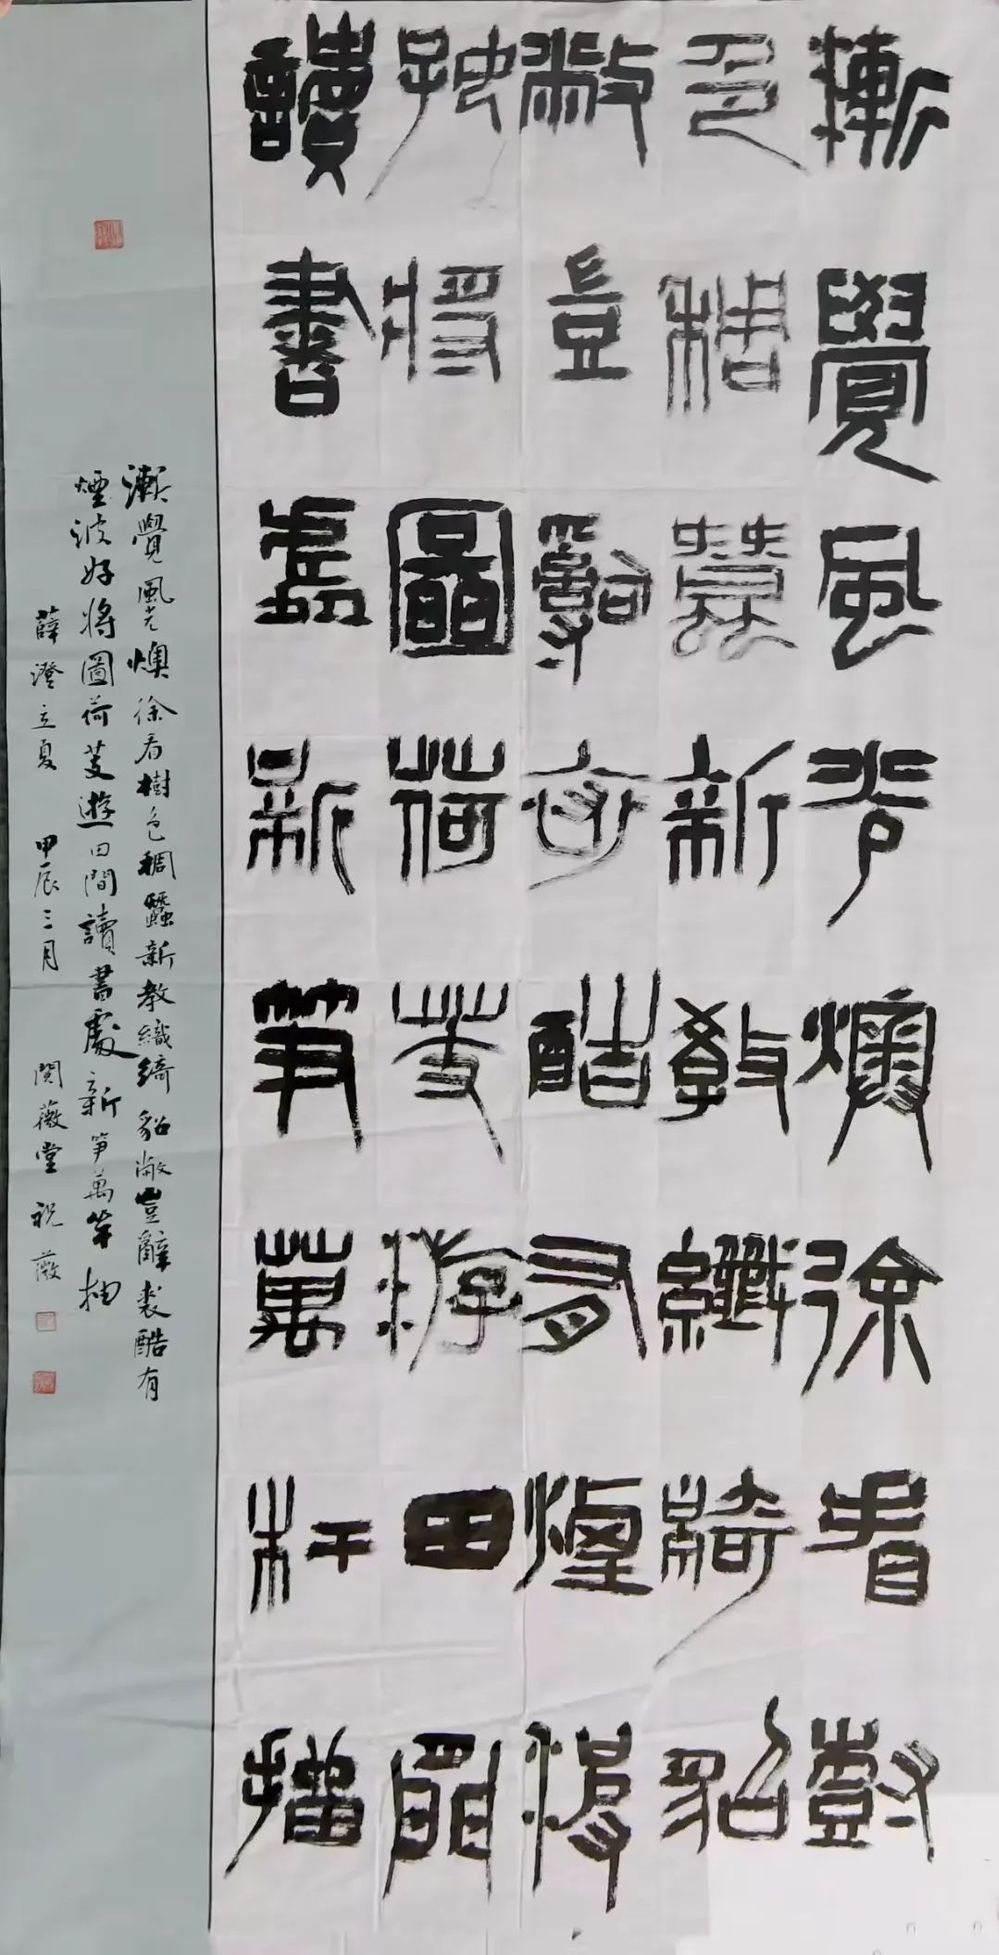 漸覺風光燠徐看樹
色稠蠶新教織綺貂
敝豈辭裘酷有煙波
好將圖荷芰游田間
讀書處新筍萬竿抽
漸覺風光燠徐看樹色稠蠶新教織綺貂敝豈辭裘酷有
煙波好將圖荷芰遊田間讀書處新筍萬竿抽
薛澄立夏 甲辰三月 閱薇堂 祝薇